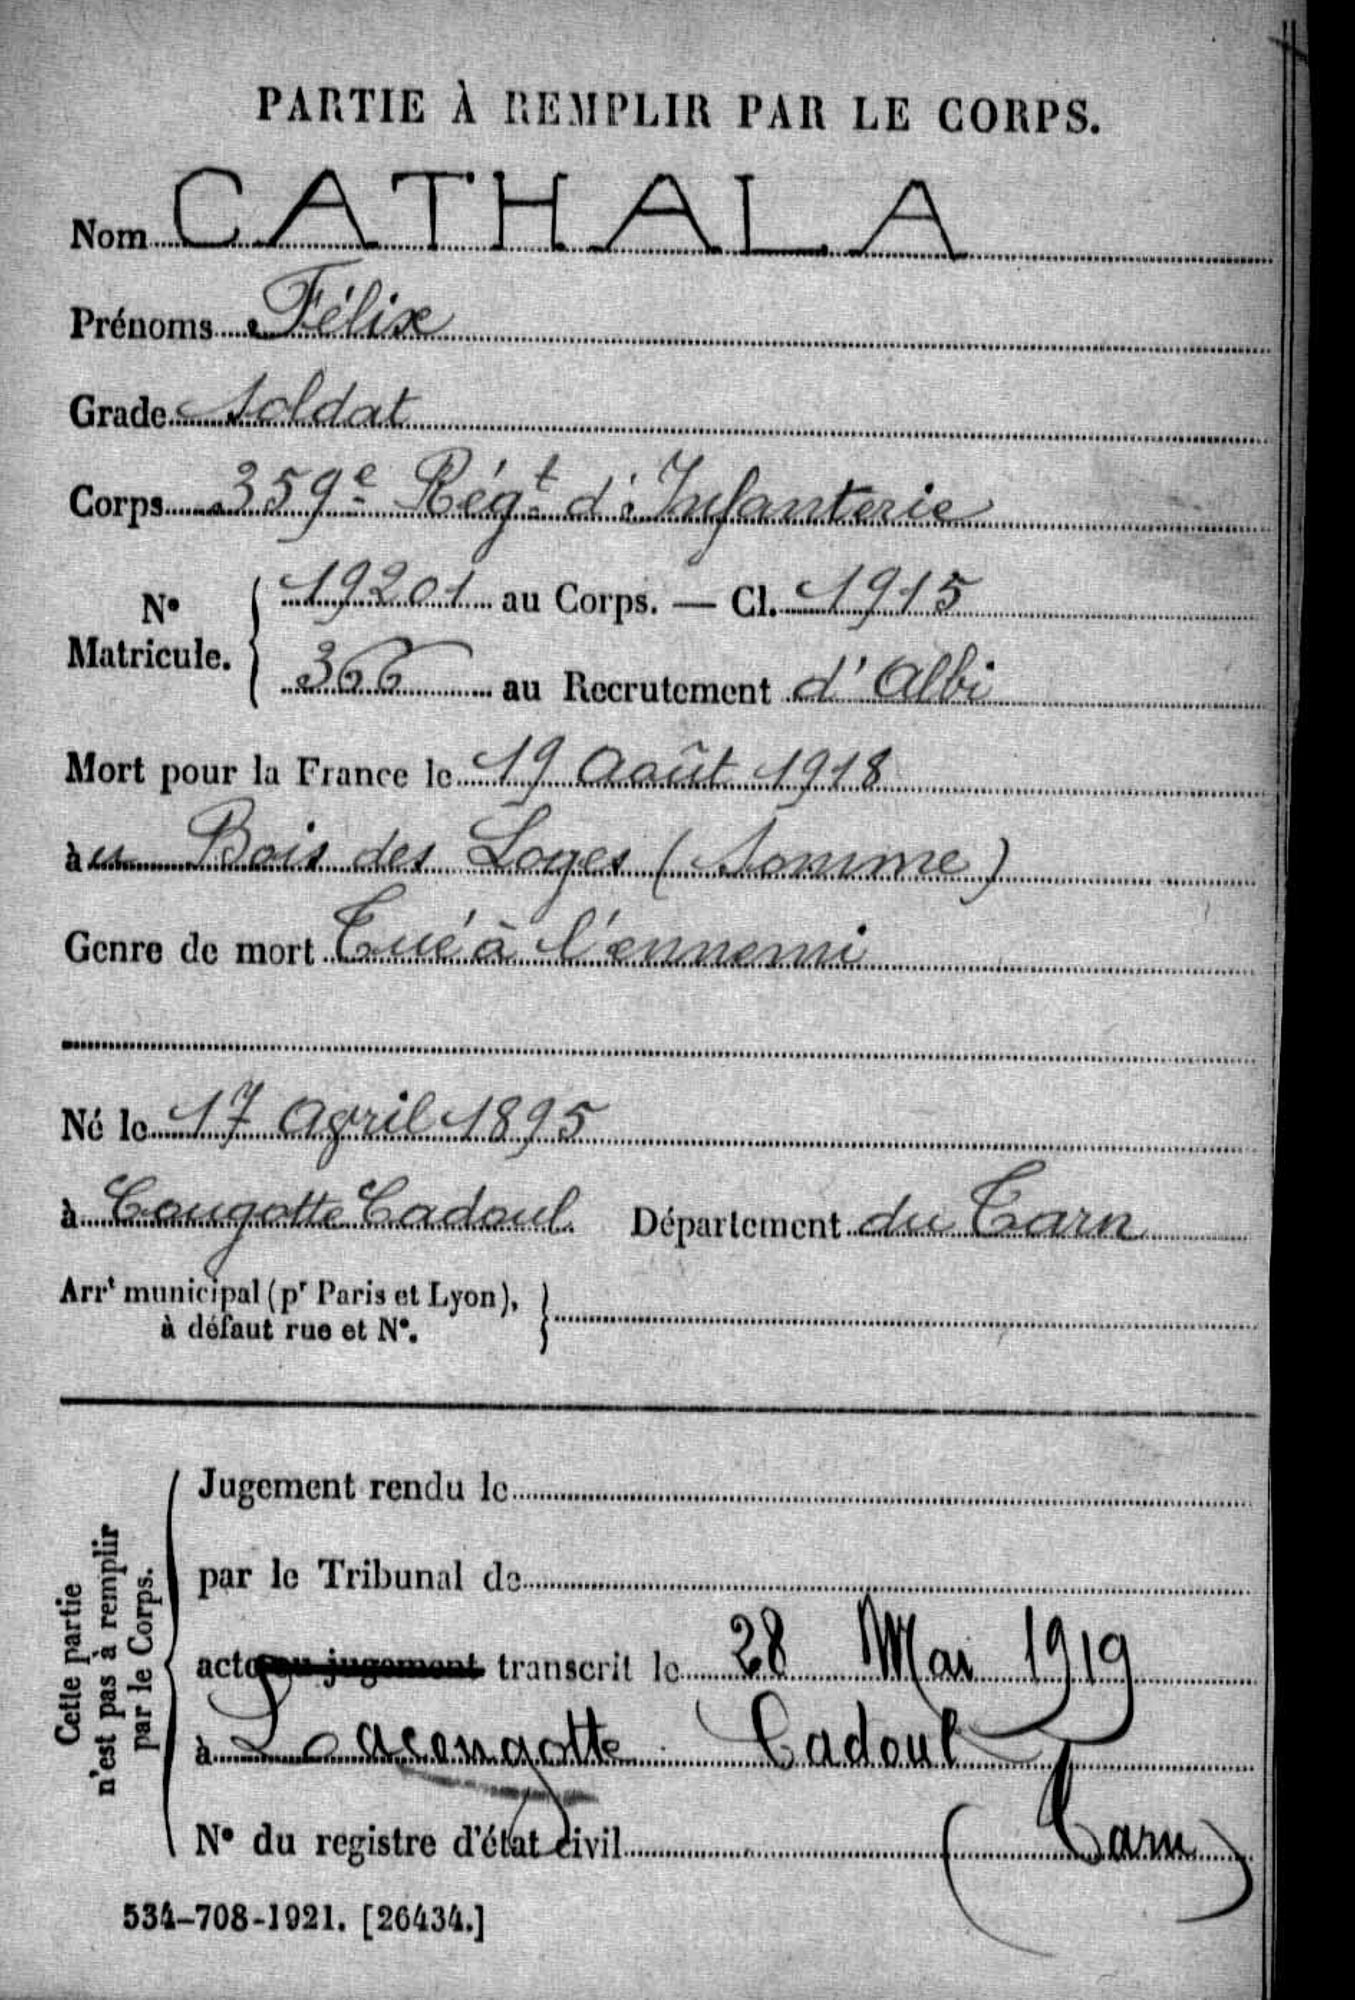 PARTIE À REMPLIR PAR LE CORPS.
Nom CATHALA
Prénoms Félix
Grade Soldat
Corps 359e Régt d'Infanterie
No Matricule. { 19201 au Corps. — Cl. 1915
366 au Recrutement d'Albi
Mort pour la France le 19 Août 1918
àu Bois des Loges (Somme)
Genre de mort Tué à l'ennemi
Né le 17 Avril 1895
à Cougotte Cadoul. Département du Tarn
Arrt municipal (pr Paris et Lyon), }
à défaut rue et No.
Cette partie
n'est pas à remplir
par le Corps.
Jugement rendu le
par le Tribunal de
acte ou jugement transcrit le 28 Mai 1919
à Lacougotte Cadoul
(Tarn)
No du registre d'état civil
534-708-1921. [26434.]